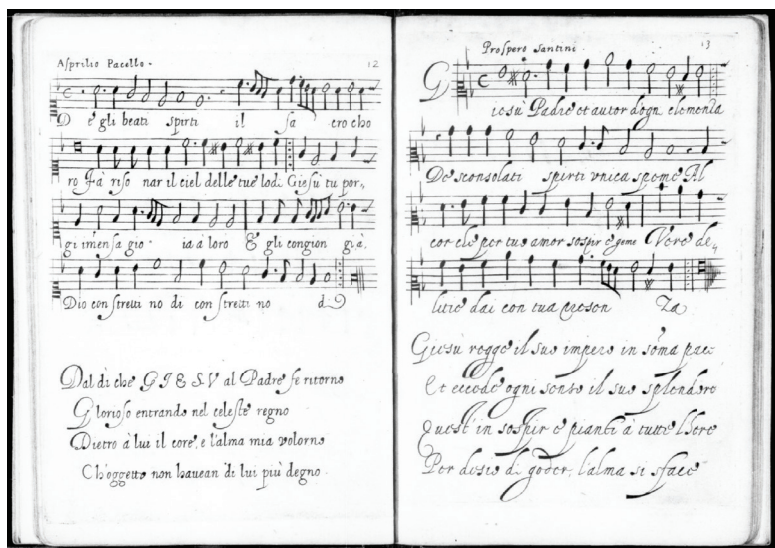 Asprilio Pacello.
12
De gli beati spirti il sa cro cho
ro Fà riso nar il ciel delle tue lodi Giesù tu por,,
gi imensa gio ia à loro E gli congion già,
Dio con stretti no di con stretti no di
Dal dì che GIESV al Padre fe ritorno
Glorioso entrando nel celeste regno
Dietro à lui il core, e l'alma mia volorno
Ch'oggetto non hauean di lui più degno
Prospero Santini.
13
Giesù Padre et autor d'ogn clemenza
De sconsolati spirti vnica speme Al
cor che per tuo amor sospir e geme Vere de,,
litie dai con tua presen za
Giesù regge il suo impero in soma pace
Et eccede ogni senso il suo splendore
Quest' in sospir e pianti à tutte l'hore
Per desio di goder, l'alma si sface